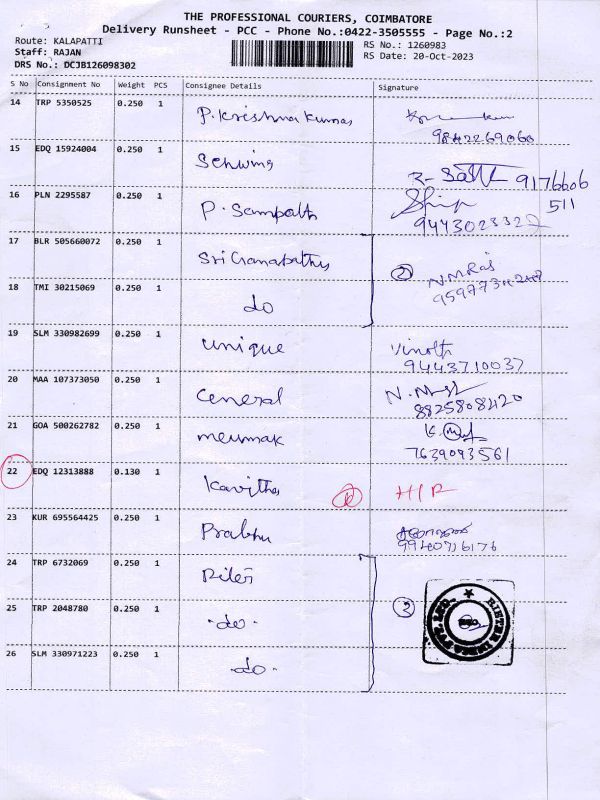 THE PROFESSIONAL COURIERS, COIMBATORE
Delivery Runsheet - PCC - Phone No.:0422-3505555 - Page No.:2
Route: KALAPATTI
Staff: RAJAN
DRS No.: DCJB126098302
RS No.: 1260983
RS Date: 20-Oct-2023
S No Consignment No Weight PCS Consignee Details Signature
14 TRP 5350525 0.250 1 P. Krishna Kumar
9842269060
15 EDQ 15924004 0.250 1 Schwing R- 9176606
511
16 PLN 2295587 0.250 1 P. Sampath
9443023322
17 BLR 505660072 0.250 1 Sri Ganapathy
② N.M Raj
18 TMI 30215069 0.250 1 do
19 SLM 330982699 0.250 1 unique Vinoth
9443710037
20 MAA 107373050 0.250 1 General
8825808420
21 GOA 500262782 0.250 1 meumak
7639093561
22 EDQ 12313888 0.130 1 Kavitha
23 KUR 695564425 0.250 1 Prabhu
9940776176
24 TRP 6732069 0.250 1
25 TRP 2048780 0.250 1 -do- ②
26 SLM 330971223 0.250 1 -do-